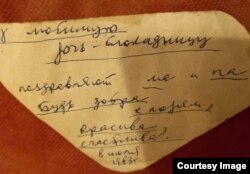 любимую
дочь-блокадницу
поздравляют ма и па
Будь добра
к людям,
красива,
счастлива,
8 июня
1943г.
Courtesy Image